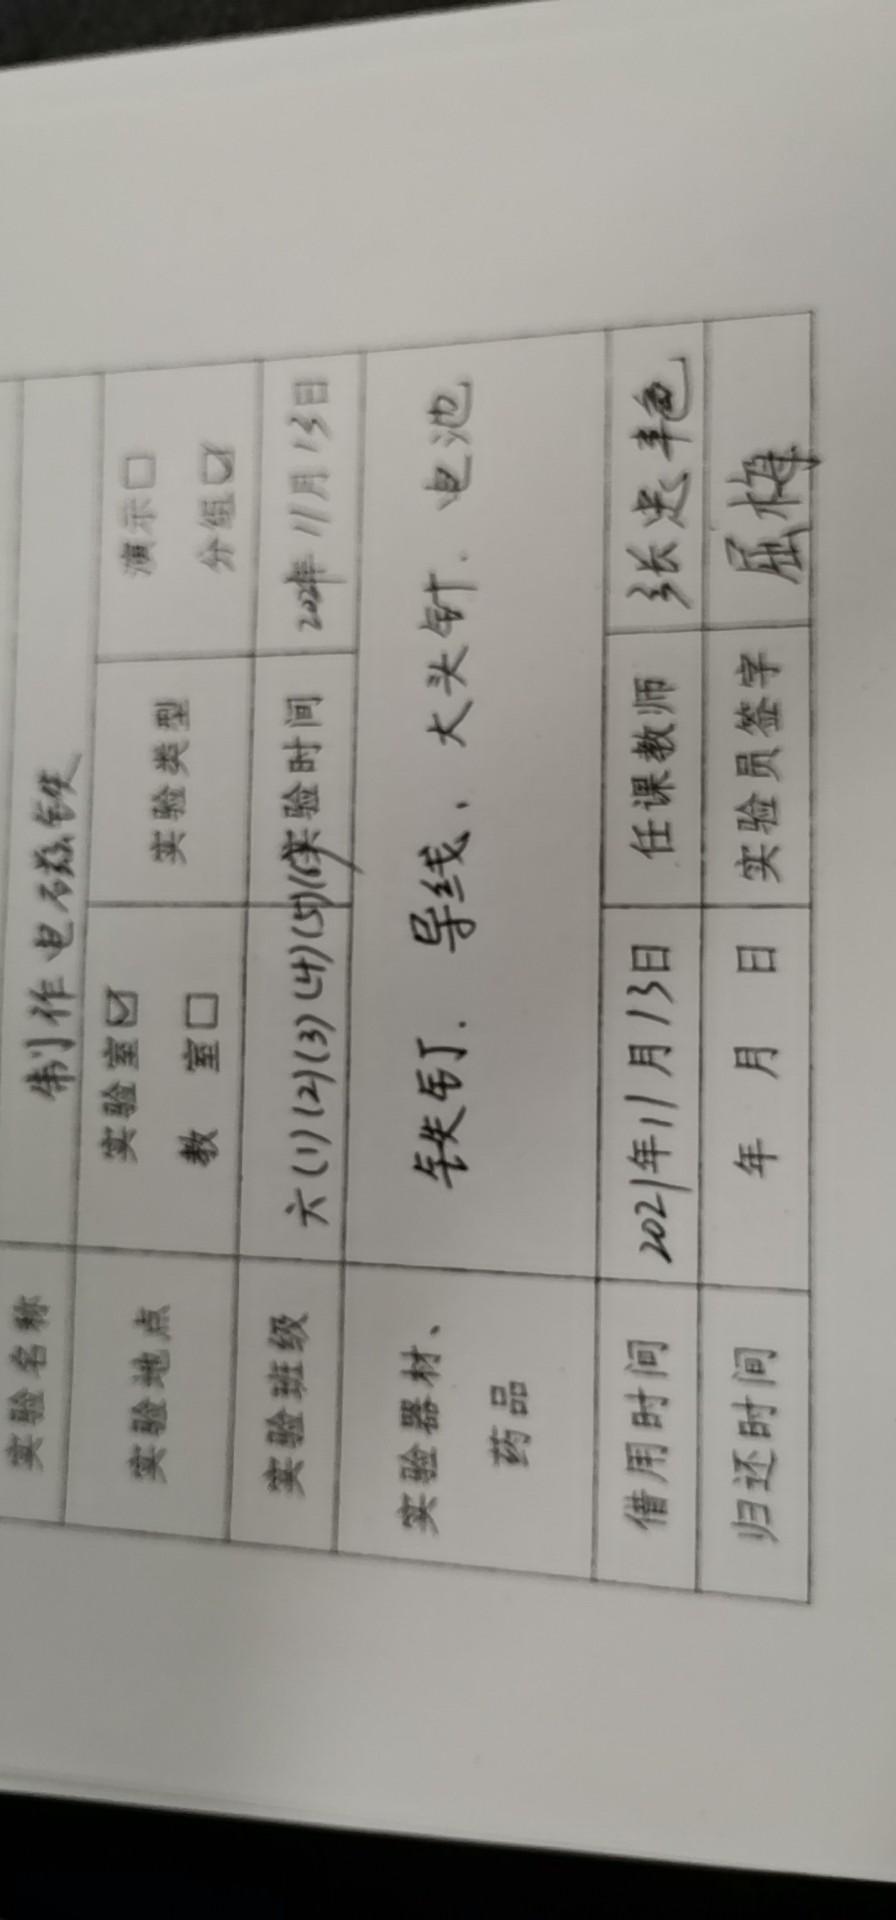 实验名称 制作电磁铁
实验地点 实验室☑ 教 室□ 实验类型 演示□ 分组☑
实验班级 六(1)(2)(3)(4)(5)(6) 实验时间 2021年11月13日
实验器材、药品 铁钉、导线、大头针、电池
借用时间 2021年11月13日 任课教师 张忠
归还时间 年 月 日 实验员签字 屈梅